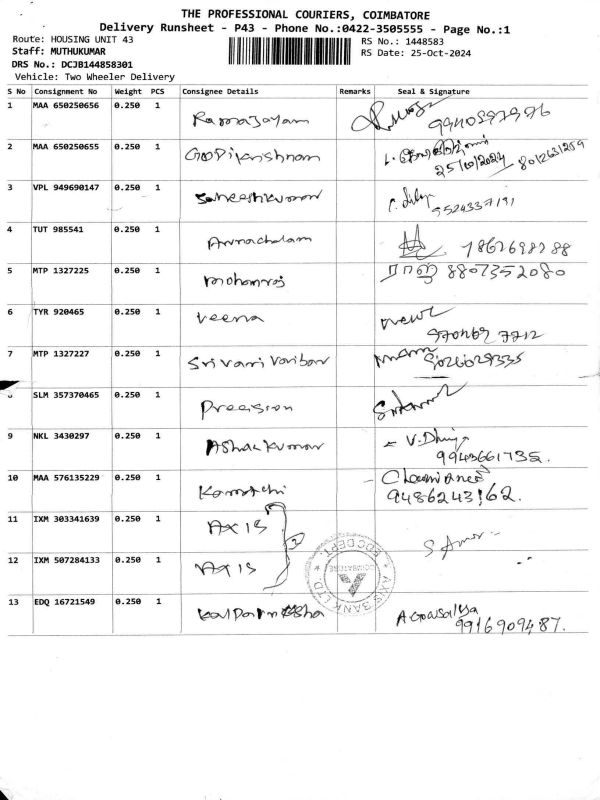 THE PROFESSIONAL COURIERS, COIMBATORE
Delivery Runsheet - P43 - Phone No.:0422-3505555 - Page No.:1
Route: HOUSING UNIT 43
RS No.: 1448583
Staff: MUTHUKUMAR
RS Date: 25-Oct-2024
DRS No.: DCJB144858301
Vehicle: Two Wheeler Delivery
S No Consignment No Weight PCS Consignee Details Remarks Seal & Signature
1 MAA 650250656 0.250 1 Ramajayam
2 MAA 650250655 0.250 1 Gopikrishnam
25/10/2024
3 VPL 949690147 0.250 1 Satheeshkumar
9524337191
4 TUT 985541 0.250 1 Arunachalam
5 MTP 1327225 0.250 1 mohanraj ராஜ 8807352080
6 TYR 920465 0.250 1 veena
7 MTP 1327227 0.250 1 Sri vari
SLM 357370465 0.250 1 Precision
9 NKL 3430297 0.250 1 Ashokkumar
9943661735.
10 MAA 576135229 0.250 1 Kamatchi
9486243162.
11 IXM 303341639 0.250 1 AXIS
12 IXM 507284133 0.250 1 AXIS
AXIS BANK LTD. * EDC DEPT. *
COIMBATORE
13 EDQ 16721549 0.250 1
9916909487.